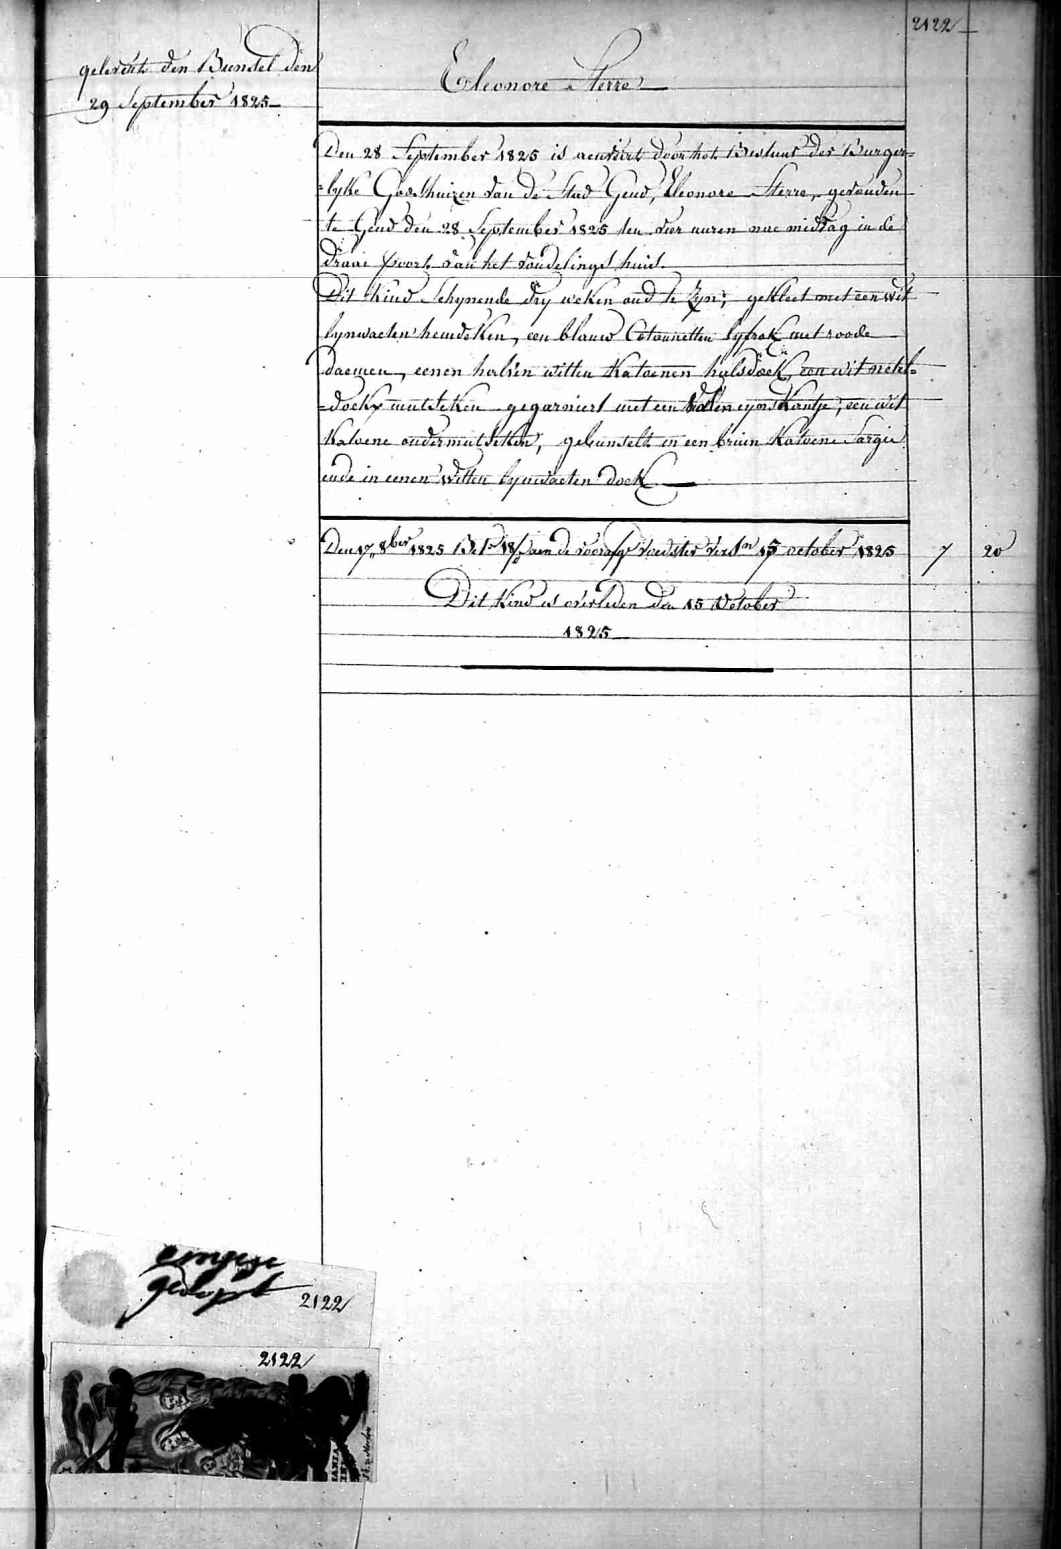 2122
gelevert den Bundel den
29 September 1825
Eleonore Sterre
Den 28 September 1825 is aenvært door het Bestuur der Burger=
=lyke Godshuizen van de Stad Gend, Eleonore Sterre, gevonden
te Gend den 28 September 1825 ten vier uuren nae middag in de
draai poort van het vondelings huis.
Dit kind schynende dry weken oud te zyn; gekleet met een wit
lynwaeten hemdeken, een blauw Cotonnetten lyfrok met roode
daemen, eenen halven witten Katoenen halsdoek, een wit netel=
=doekx mutseken gegarniert met een kantje; een wit
Katoene ondermutseken, gebunselt in een bruin Katoene Sargie
ende in eenen witten lynwaeten doek
Den 17 8ber 1825 aen de voorsz. voedster 15 october 1825
7
20
Dit kind is overleden den 15 October
1825
gedopt
2122
2122